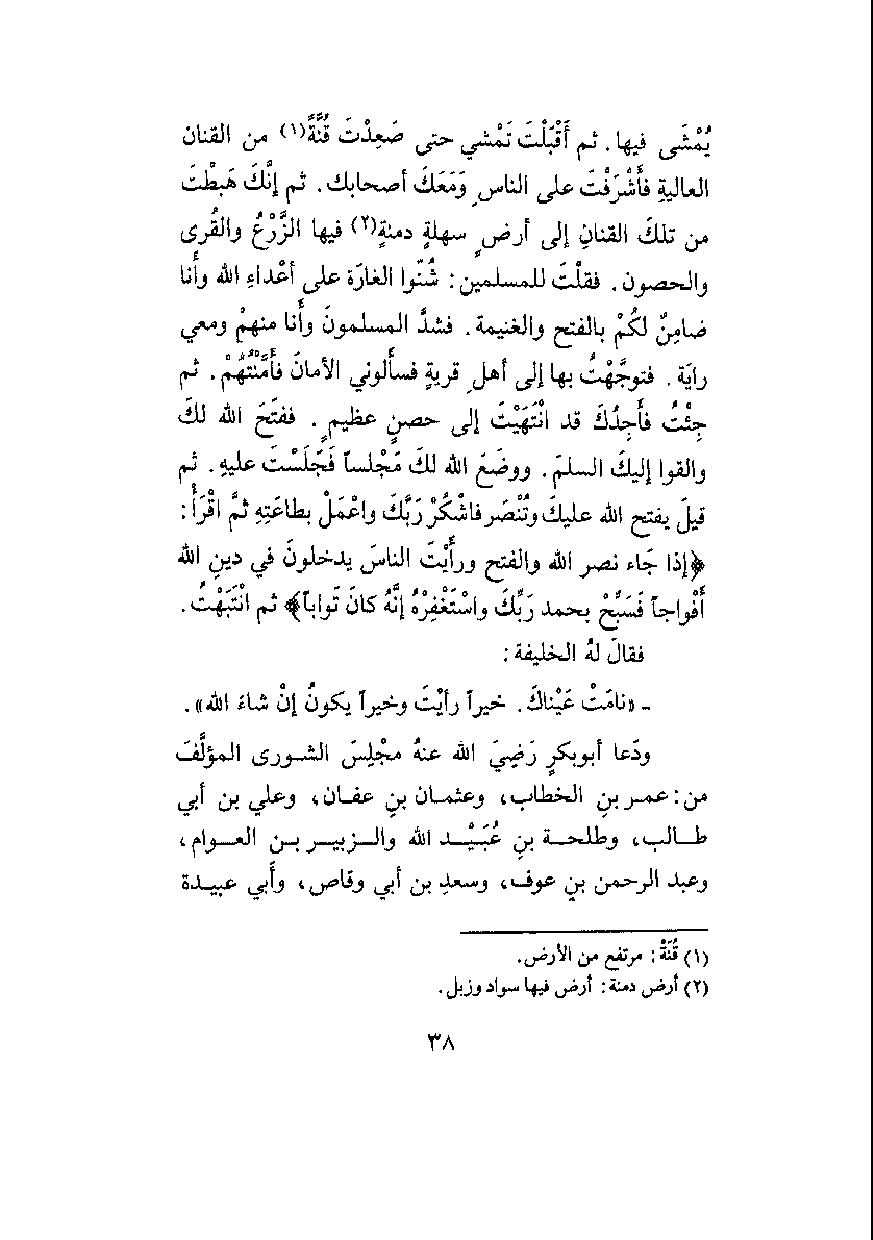 يُمْشَى فيها. ثم أَقْبَلْتَ تَمْشي حتى صَعِدْتَ قُنَّةً(١) من القنان
العاليةِ فأَشْرَفْتَ على الناسِ وَمَعَكَ أصحابك. ثم إنَّكَ هَبطْتَ
من تلكَ القنانِ إلى أرضٍ سهلةٍ دمنةٍ(٢) فيها الزَّرْعُ والقُرى
والحصون. فقلْتَ للمسلمين: شُنّوا الغارَة على أعْداءِ الله وأنا
ضامِنٌ لكُمْ بالفتح والغنيمة. فشدَّ المسلمونَ وأنا منهمْ ومعي
رايَة. فتوجَّهْتُ بها إلى أهلِ قريةٍ فسألوني الأمانَ فأَمَّنْتُهُمْ. ثم
جِئْتُ فأَجِدُكَ قد انْتَهَيْتَ إلى حصنٍ عظيمٍ. ففتَحَ الله لكَ
والقوا إليكَ السلمَ. ووضَعَ الله لكَ مَجْلساً فَجَلَسْتَ عليهِ. ثم
قيلَ يفتح الله عليكَ وتُنْصَر فاشْكُرْ رَبَّكَ واعْمَلْ بطاعَتِهِ ثمَّ اقْرَأْ:
﴿إذا جَاء نصر الله والفتح ورأَيْتَ الناسَ يدخلونَ في دينِ الله
أَفْواجاً فَسَبِّحْ بحمد رَبِّكَ واسْتَغْفِرْهُ إنَّهُ كانَ تَواباً﴾ ثم انْتَبَهْتُ.
فقالَ لهُ الخليفة:
ـ «نامَتْ عَيْناكَ. خيراً رأيْتَ وخيراً يكونُ إنْ شاءَ الله».
ودَعا أبوبكرٍ رَضِيَ الله عنهُ مجْلِسَ الشورى المؤلَّفَ
من: عمر بنِ الخطاب، وعثمان بنِ عفان، وعلي بن أبي
طالب، وطلحة بنِ عُبَيْد الله والزبير بن العوام،
وعبد الرحمن بنِ عوف، وسعدِ بن أبي وقاص، وأبي عبيدة
(١) قُنَةْ: مرتفع من الأرض.
(٢) أرض دمنة: أرض فيها سواد وزبل.
٣٨